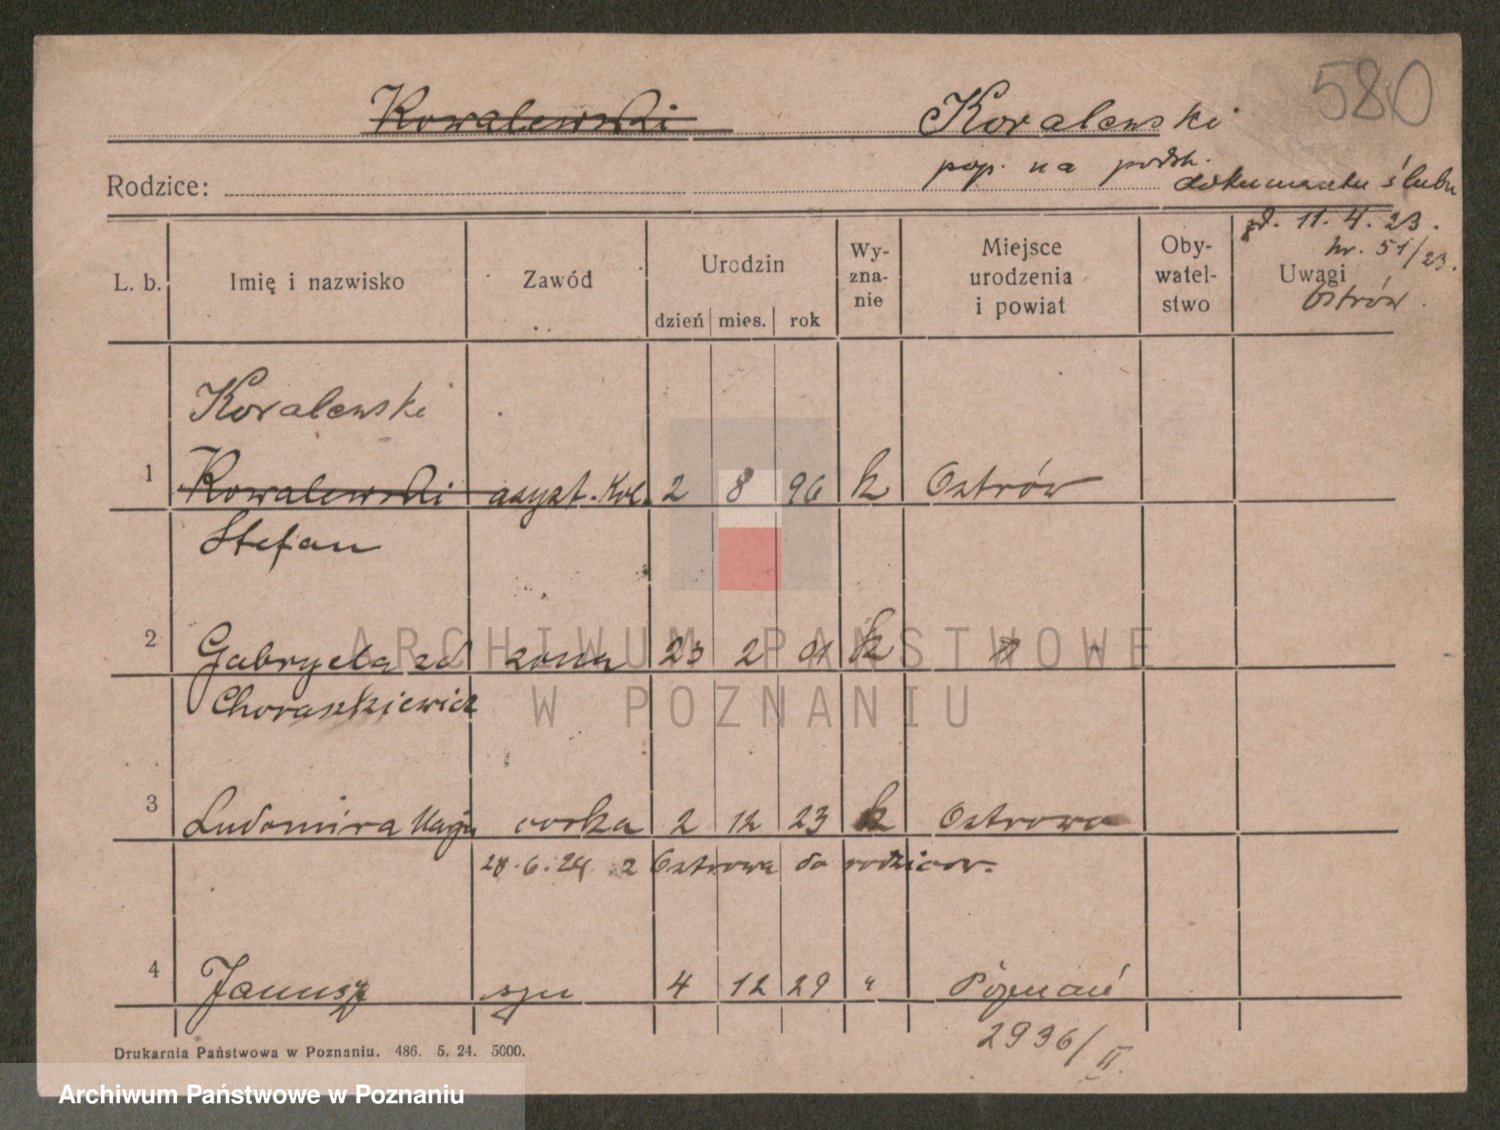 580
Kowalewski Koralewski
pop. na podst.
Rodzice: dokumentu ślubu
zd. 11. 4. 23.
nr. 51/23.
Ostrów.
L. b. Imię i nazwisko Zawód Urodzin dzień mies. rok Wy-zna-nie Miejsce urodzenia i powiat Oby-watel-stwo Uwagi
Koralewski
1 Kowalewski asyst. Kol. 2 8 96 k Ostrów
Stefan
2 Gabryela zd żona 23 2 01 k "
Choraszkiewicz
3 Ludomira Marja córka 2 12 23 k Ostrowo
28. 6. 24 z Ostrowa do rodziców.
4 Janusz syn 4 12 29 " Poznań
2936/II.
Drukarnia Państwowa w Poznaniu. 486. 5. 24. 5000.
ARCHIWUM PAŃSTWOWE
W POZNANIU
Archiwum Państwowe w Poznaniu